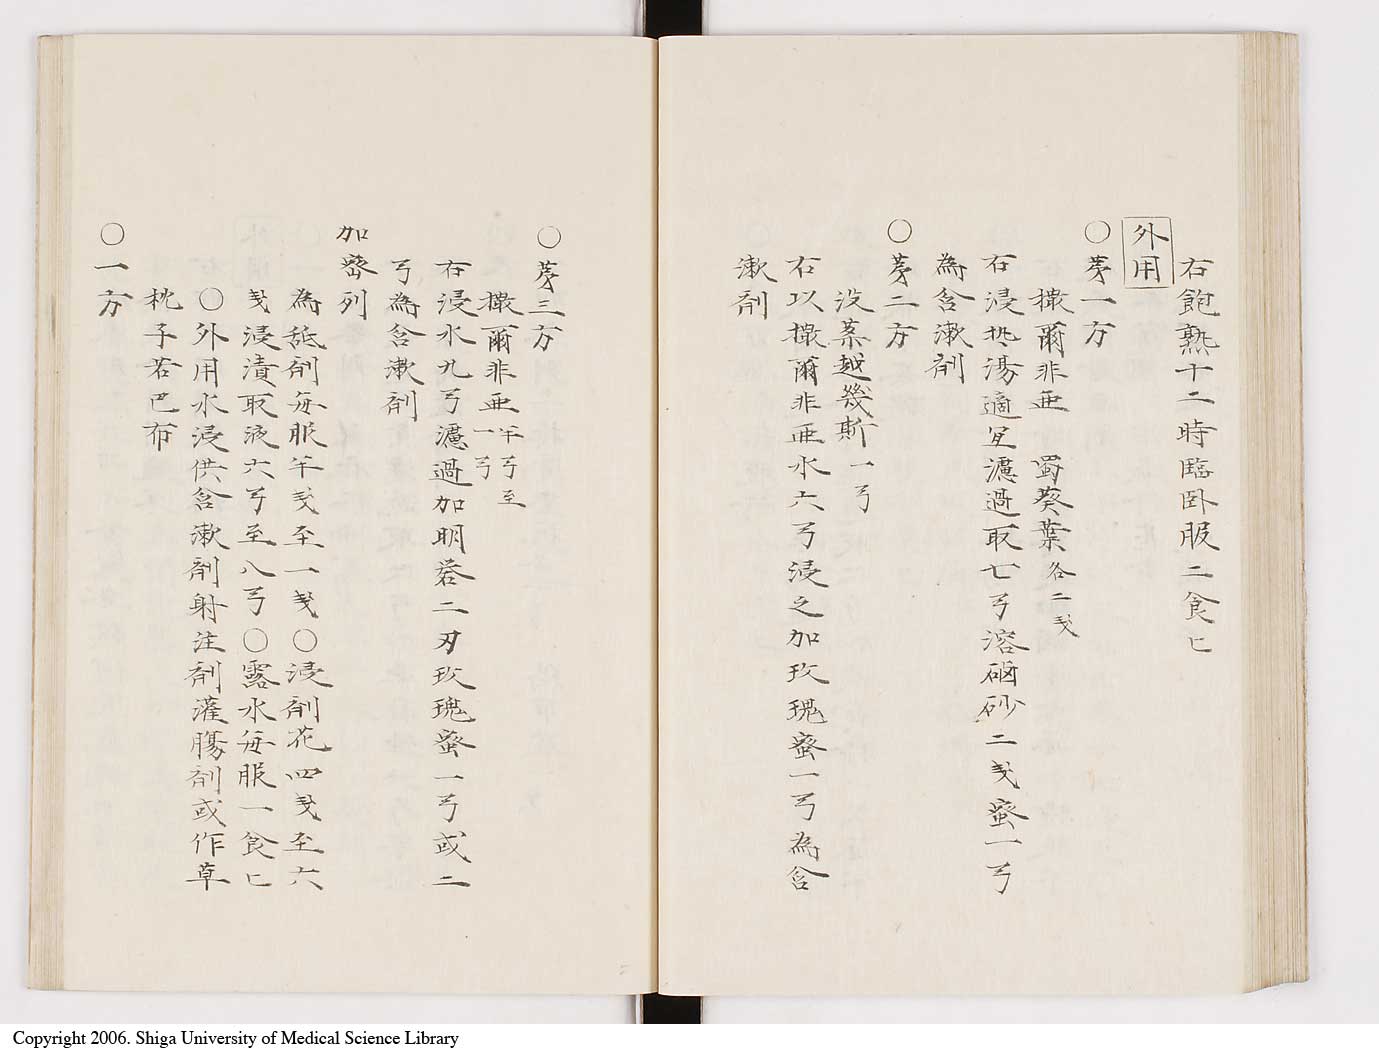 右飽熟十二時臨臥服二食匕
外用
○第一方
撒爾非亜 蜀葵葉各二戔
右浸热湯適宜濾過取七弓溶硇砂二戔蜜一弓
為含漱剤
○第二方
没薬越幾斯一弓
右以撒爾非亜水六弓浸之加玫瑰蜜一弓為含
漱剤
○第三方
撒爾非亜半弓至一弓
右浸水九弓濾過加明礬二刃玫瑰蜜一弓或二
弓為含漱剤
加密列
為舐剤毎服半戔至一戔○浸剤花四戔至六
戔浸漬取液六弓至八弓○露水毎服一食匕
○外用水浸供含漱剤射注剤灌腸剤或作草
枕子若巴布
○一方
Copyright 2006. Shiga University of Medical Science Library